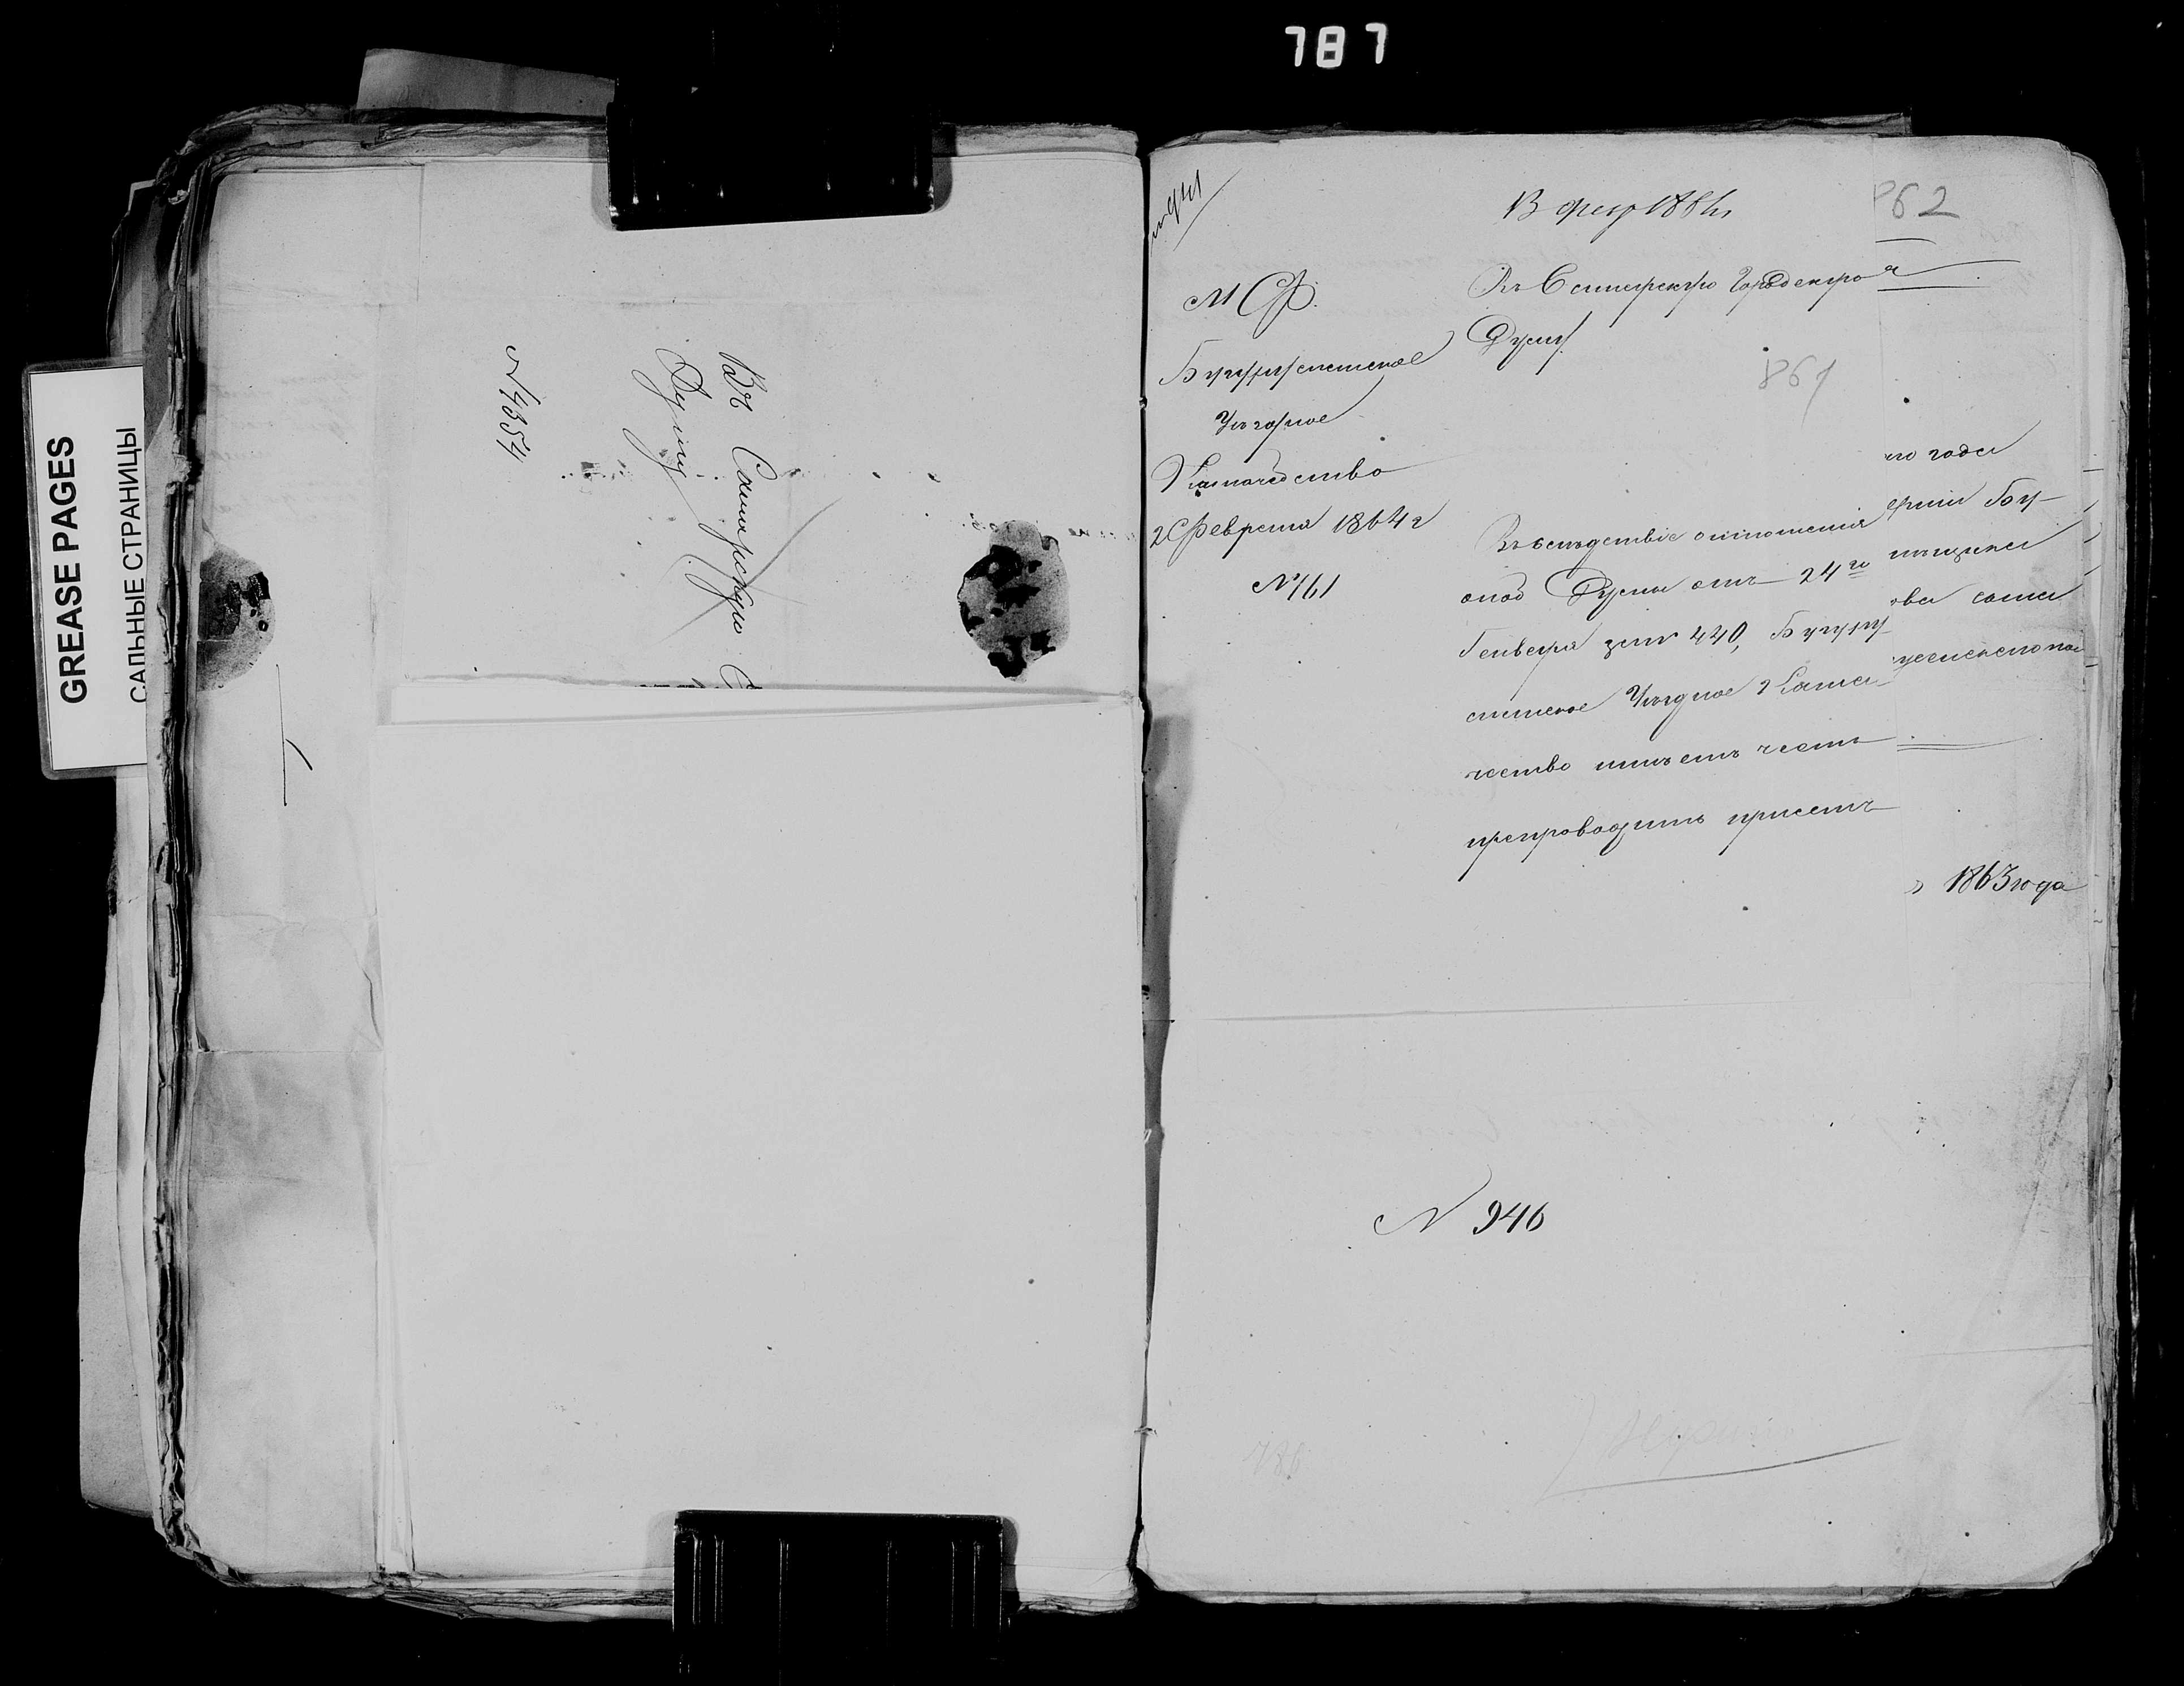 787
GREASE PAGES
САЛЬНЫЕ СТРАНИЦЫ
Въ Самарскую
Думу
№ 4354
13 февр 1864
862
М Ф.
Бугурусланское
Уѣздное
Казначейство
2 Февраля 1864 г
№ 161
Въ Самарскую Городскую
Думу.
861
Въ слѣдствіе отношенія
оной Думы отъ 24го
Генваря за № 440, Бугуру
сланское Уѣздное Казна
чейство имѣетъ честь
препроводить при семъ
го года
ерніи Бу-
ова сына
1863 года
№ 946
786